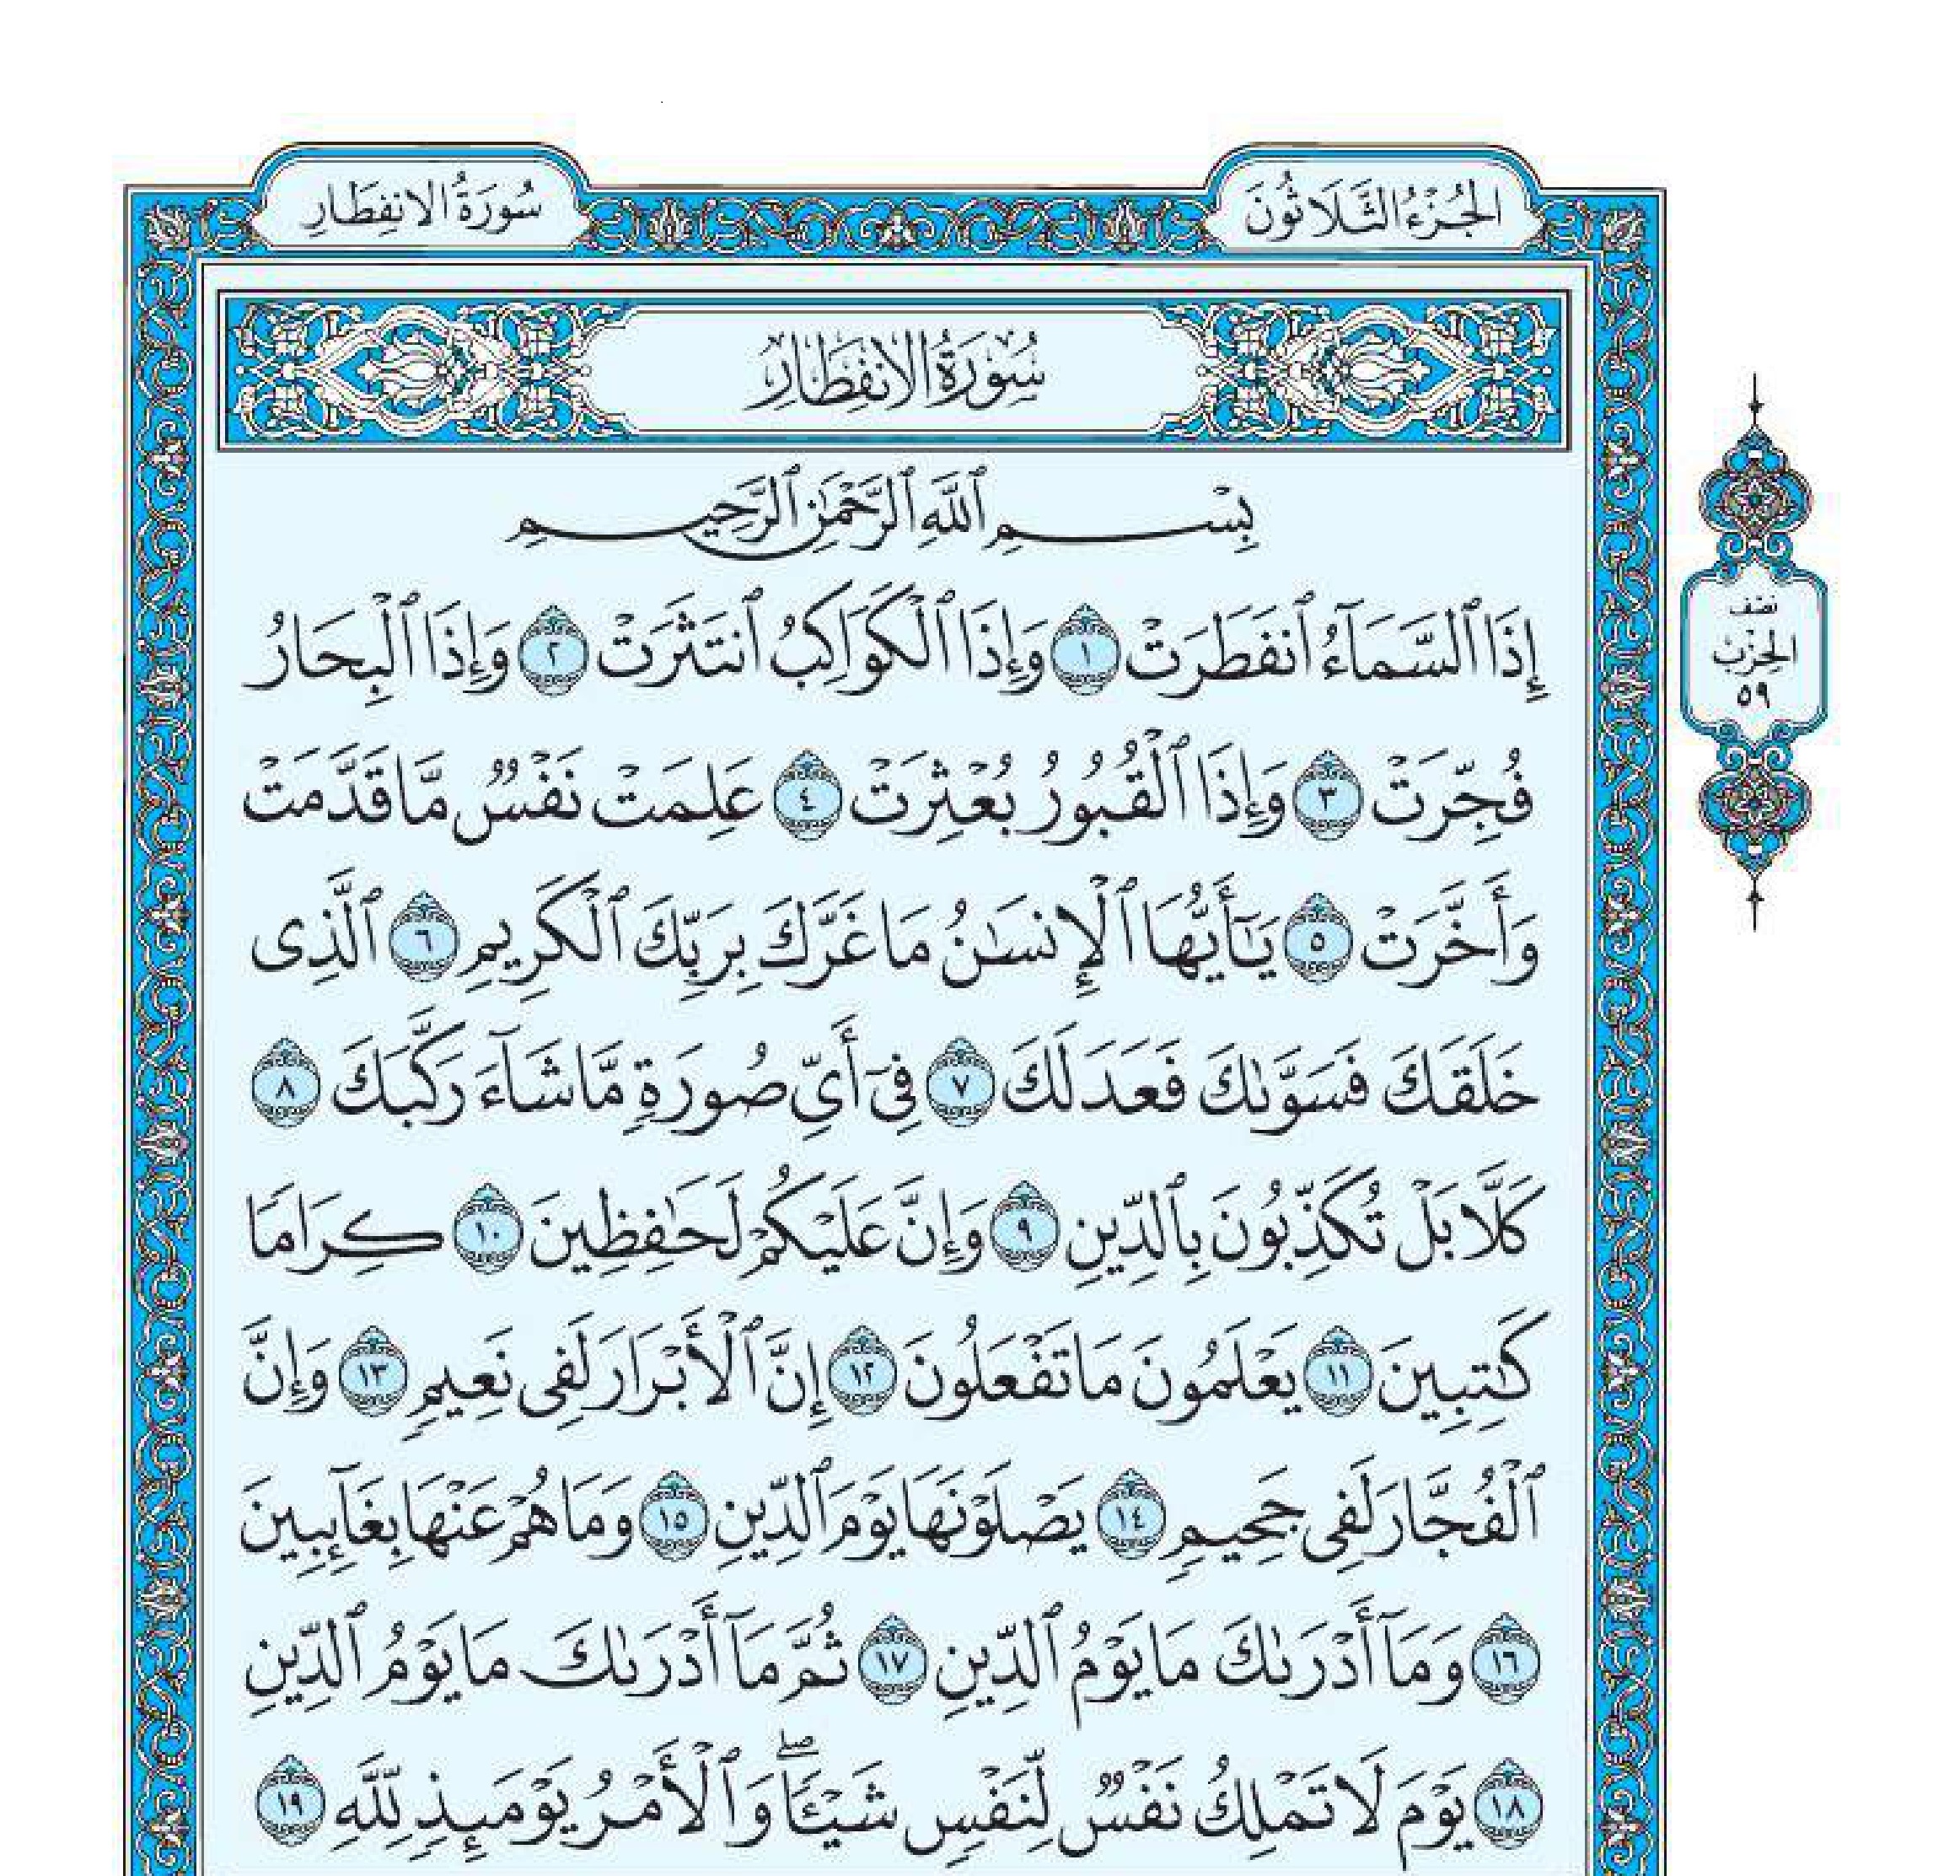 الجُزْءُ الثَّلَاثُونَ
سُورَةُ الانفِطَارِ
سُورَةُ الانفِطَارِ
بِسْمِ ٱللَّهِ ٱلرَّحْمَٰنِ ٱلرَّحِيمِ
إِذَا ٱلسَّمَآءُ ٱنفَطَرَتْ ١ وَإِذَا ٱلْكَوَاكِبُ ٱنتَثَرَتْ ٢ وَإِذَا ٱلْبِحَارُ
فُجِّرَتْ ٣ وَإِذَا ٱلْقُبُورُ بُعْثِرَتْ ٤ عَلِمَتْ نَفْسٌ مَّا قَدَّمَتْ
وَأَخَّرَتْ ٥ يَٰٓأَيُّهَا ٱلْإِنسَٰنُ مَا غَرَّكَ بِرَبِّكَ ٱلْكَرِيمِ ٦ ٱلَّذِى
خَلَقَكَ فَسَوَّىٰكَ فَعَدَلَكَ ٧ فِىٓ أَىِّ صُورَةٍ مَّا شَآءَ رَكَّبَكَ ٨
كَلَّا بَلْ تُكَذِّبُونَ بِٱلدِّينِ ٩ وَإِنَّ عَلَيْكُمْ لَحَٰفِظِينَ ١٠ كِرَامًا
كَٰتِبِينَ ١١ يَعْلَمُونَ مَا تَفْعَلُونَ ١٢ إِنَّ ٱلْأَبْرَارَ لَفِى نَعِيمٍ ١٣ وَإِنَّ
ٱلْفُجَّارَ لَفِى جَحِيمٍ ١٤ يَصْلَوْنَهَا يَوْمَ ٱلدِّينِ ١٥ وَمَا هُمْ عَنْهَا بِغَآئِبِينَ
١٦ وَمَآ أَدْرَىٰكَ مَا يَوْمُ ٱلدِّينِ ١٧ ثُمَّ مَآ أَدْرَىٰكَ مَا يَوْمُ ٱلدِّينِ
١٨ يَوْمَ لَا تَمْلِكُ نَفْسٌ لِّنَفْسٍ شَيْـًٔا ۖ وَٱلْأَمْرُ يَوْمَئِذٍ لِّلَّهِ ١٩
نصف
الحِزْب
٥٩